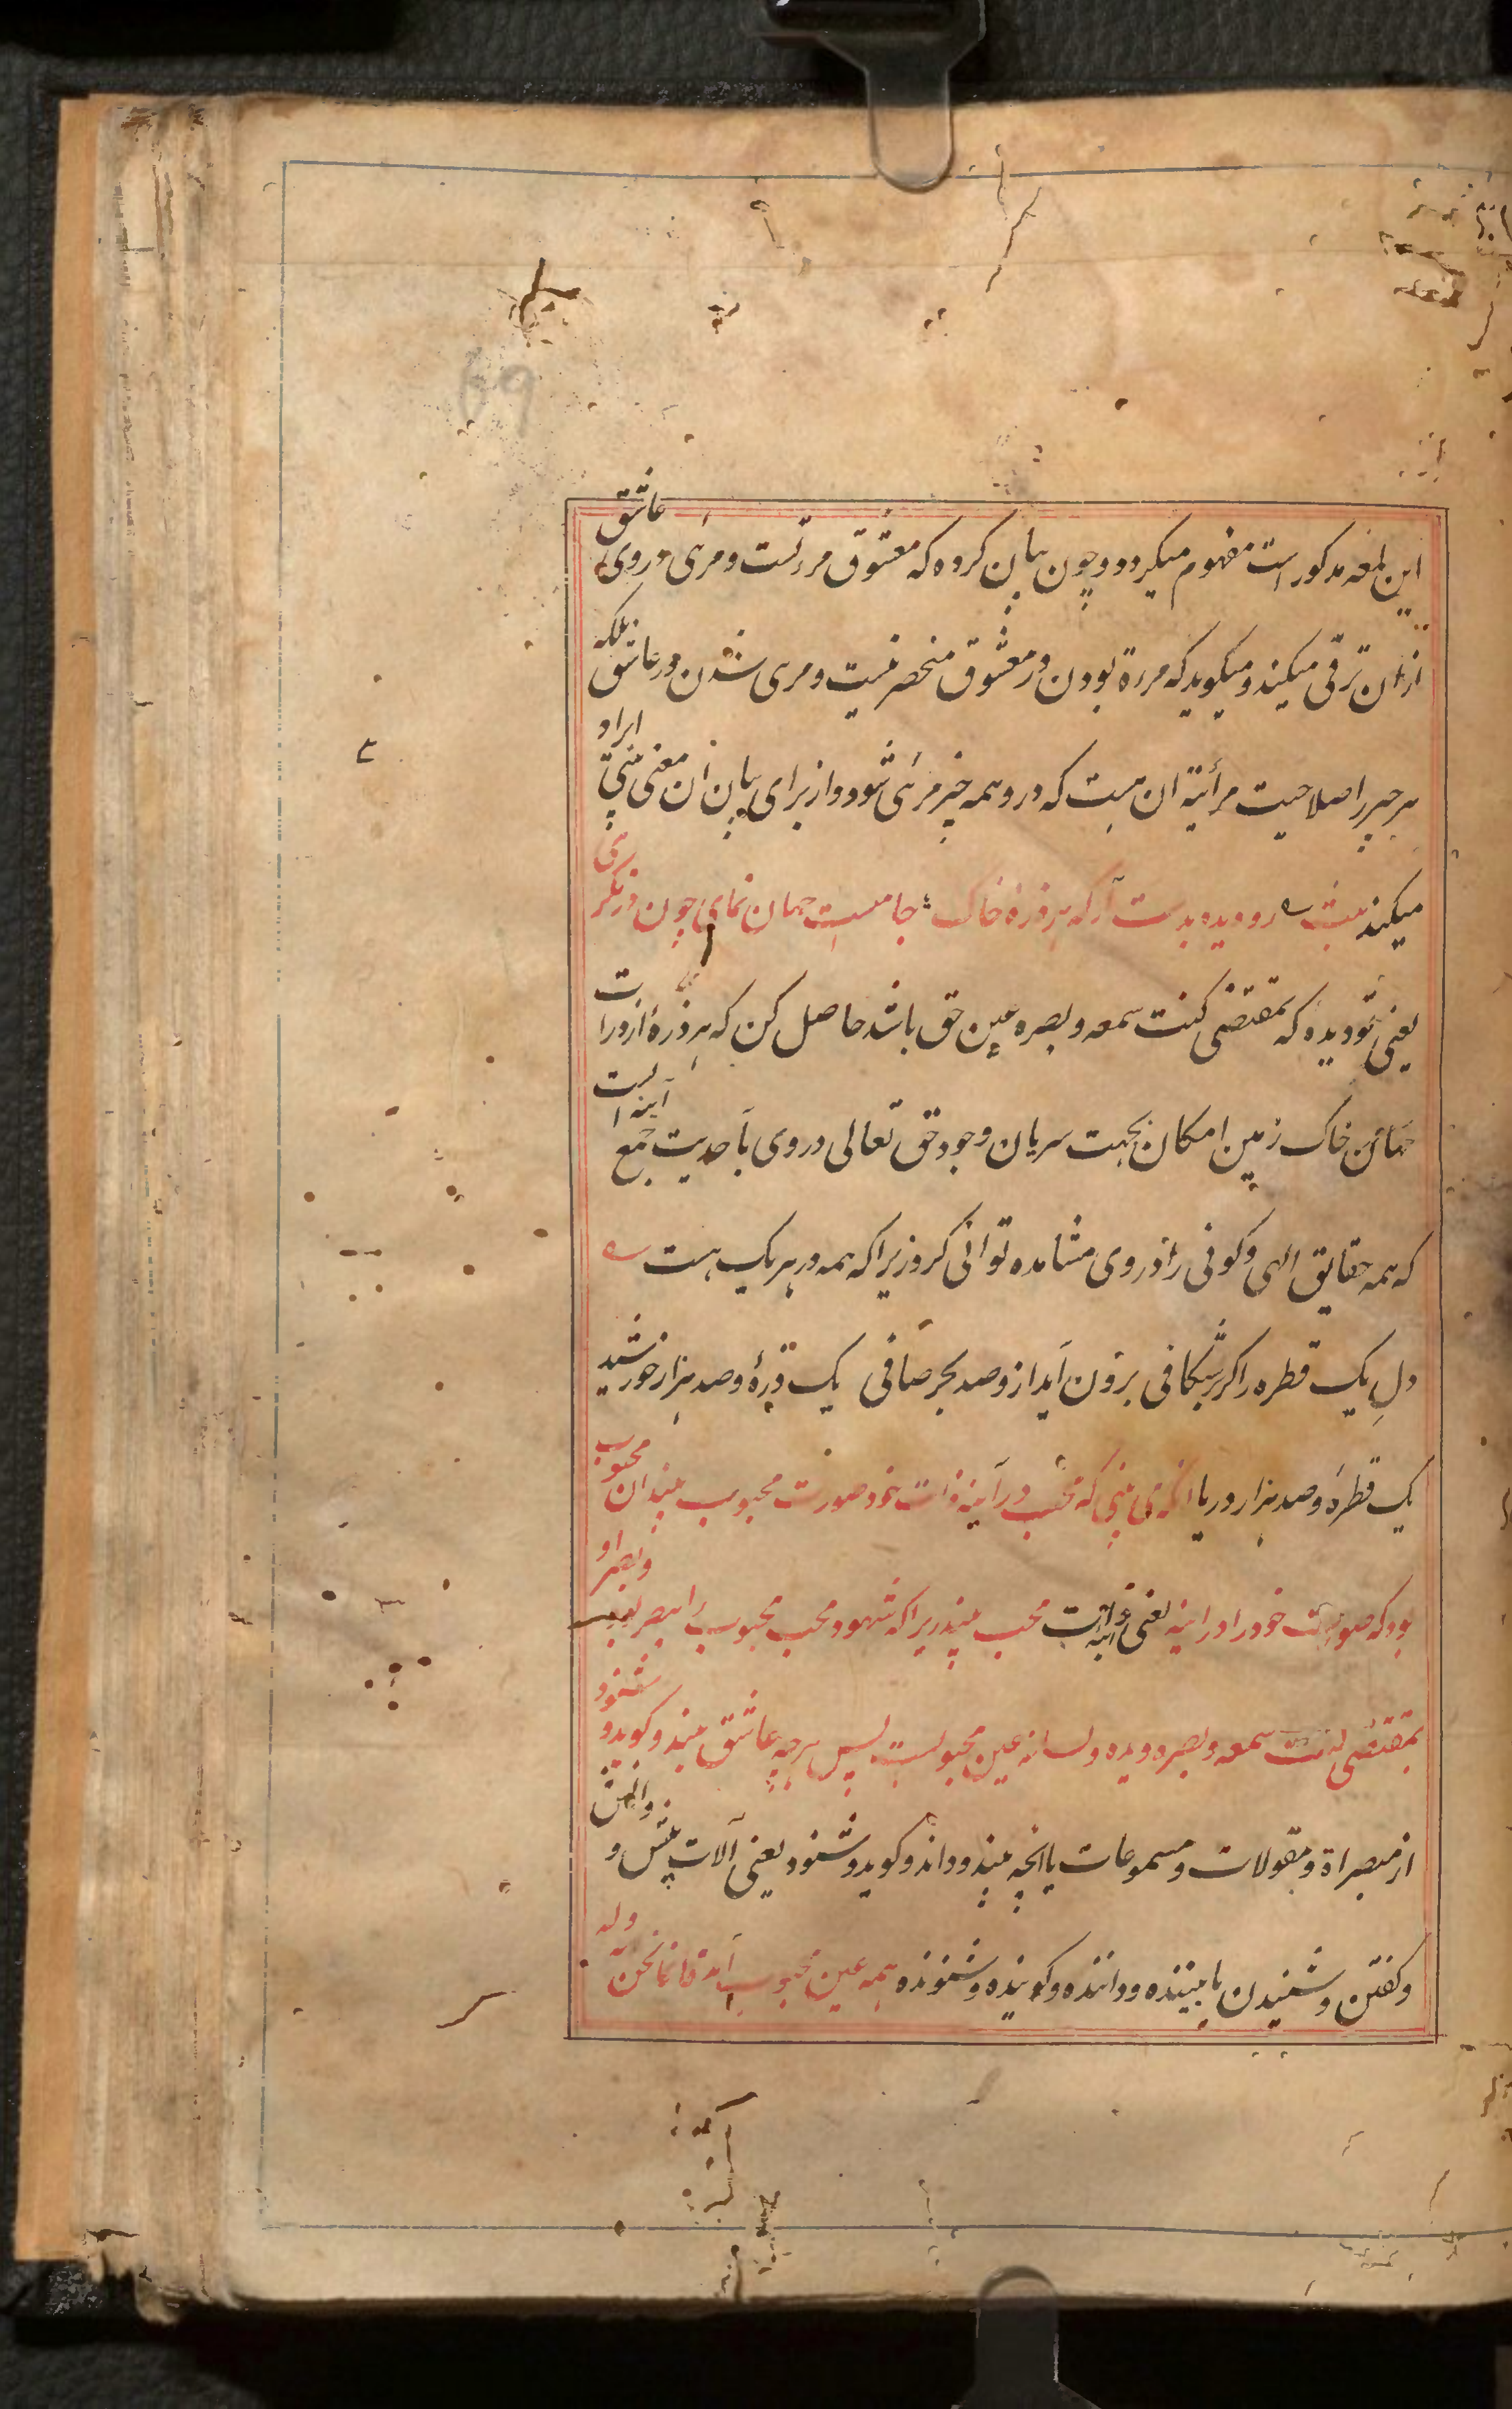 این لمعه مذکور است مفهوم میکردد و چون بیان کرده که معشوق مرءتست و مرئی در وی عاشق
ازان ترقی میکند و میکوید که مرءة بودن در معشوق منحصر نیست و مرئی شدن در عاشق بلکه
هر چیز را صلاحیت مرأتیة ان هست که در و همه چیز مرئی شود و از برای بیان ان معنی بیتی ایراد
میکند بیت رو دیده بدست آر که هر ذرهٔ خاک جامیست جهان نمای چون در نکری
یعنی تو دیدهٔ که بمقتضی کنت سمعه و بصره عین حق باشد حاصل کن که هر ذرهٔ از ذرات
جهان خاک زمین امکان بجهت سریان وجود حق تعالی در وی باحدیت جمع آینه است
که همه حقایق الهی و کونی را در وی مشاهده توانی کرد زیرا که همه در هر یک هست
دلِ یک قطره را کر بشکافی برون آید ازو صد بحر صافی یک ذرهٔ و صد هزار خورشید
یک قطرهٔ و صد هزار دریا انکه می بینی که محب در آینه ذات خود صورت محبوب بیند ان محبوب
بود که صورت خود را در اینه یعنی محب بیند زیرا که شهود محب محبوب را ببصر بود و بصر او
بمقتضی کنت سمعه و بصره و یده و لسانه عین محبوبست پس هرچه عاشق بیند و کوید و شنود
از مبصراة و مقولات و مسموعات یا انچه بیند و داند و کوید و شنود یعنی آلات بینش و دانش
و کفتن و شنیدن یا بیننده و داننده و کوینده و شنونده همه عین محبوب آمد فانما نحن به وله